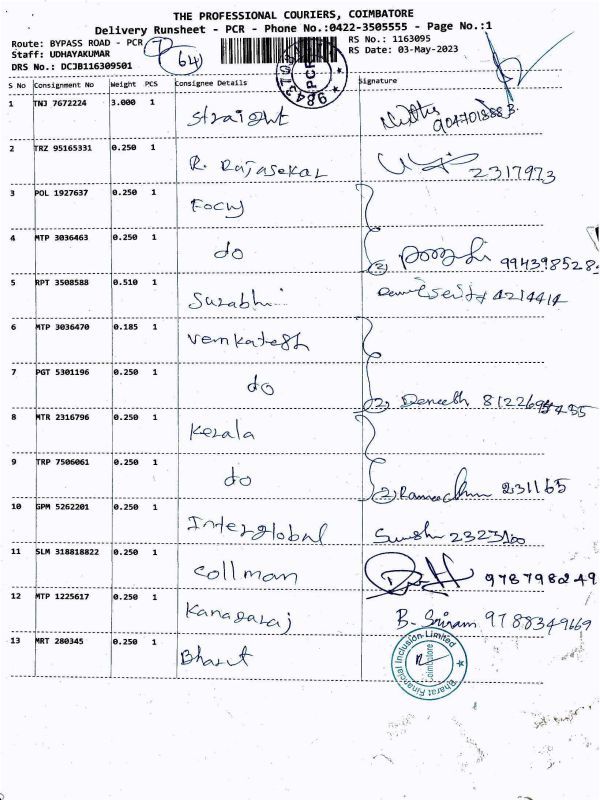 THE PROFESSIONAL COURIERS, COIMBATORE
Delivery Runsheet - PCR - Phone No.:0422-3505555 - Page No.:1
Route: BYPASS ROAD - PCR
RS No.: 1163095
Staff: UDHAYAKUMAR
64
RS Date: 03-May-2023
DRS No.: DCJB116309501
S No Consignment No Weight PCS Consignee Details Signature
1 TNJ 7672224 3.000 1 Straight
2 TRZ 95165331 0.250 1 R. Rajasekar 2317973
3 POL 1927637 0.250 1 Focus
4 MTP 3036463 0.250 1 do 2 994398528
5 RPT 3508588 0.510 1 Surabhi 4214414
6 MTP 3036470 0.185 1 Venkatesh
7 PGT 5301196 0.250 1 do 2
8 MTR 2316796 0.250 1 Kerala
9 TRP 7506061 0.250 1 do 2 231165
10 GPM 5262201 0.250 1 Interglobal
11 SLM 318818822 0.250 1 Collman
12 MTP 1225617 0.250 1 Kanagaraj B. Sriram 9788349669
13 MRT 280345 0.250 1 Bharat
Bharat Financial Inclusion Limited
Coimbatore